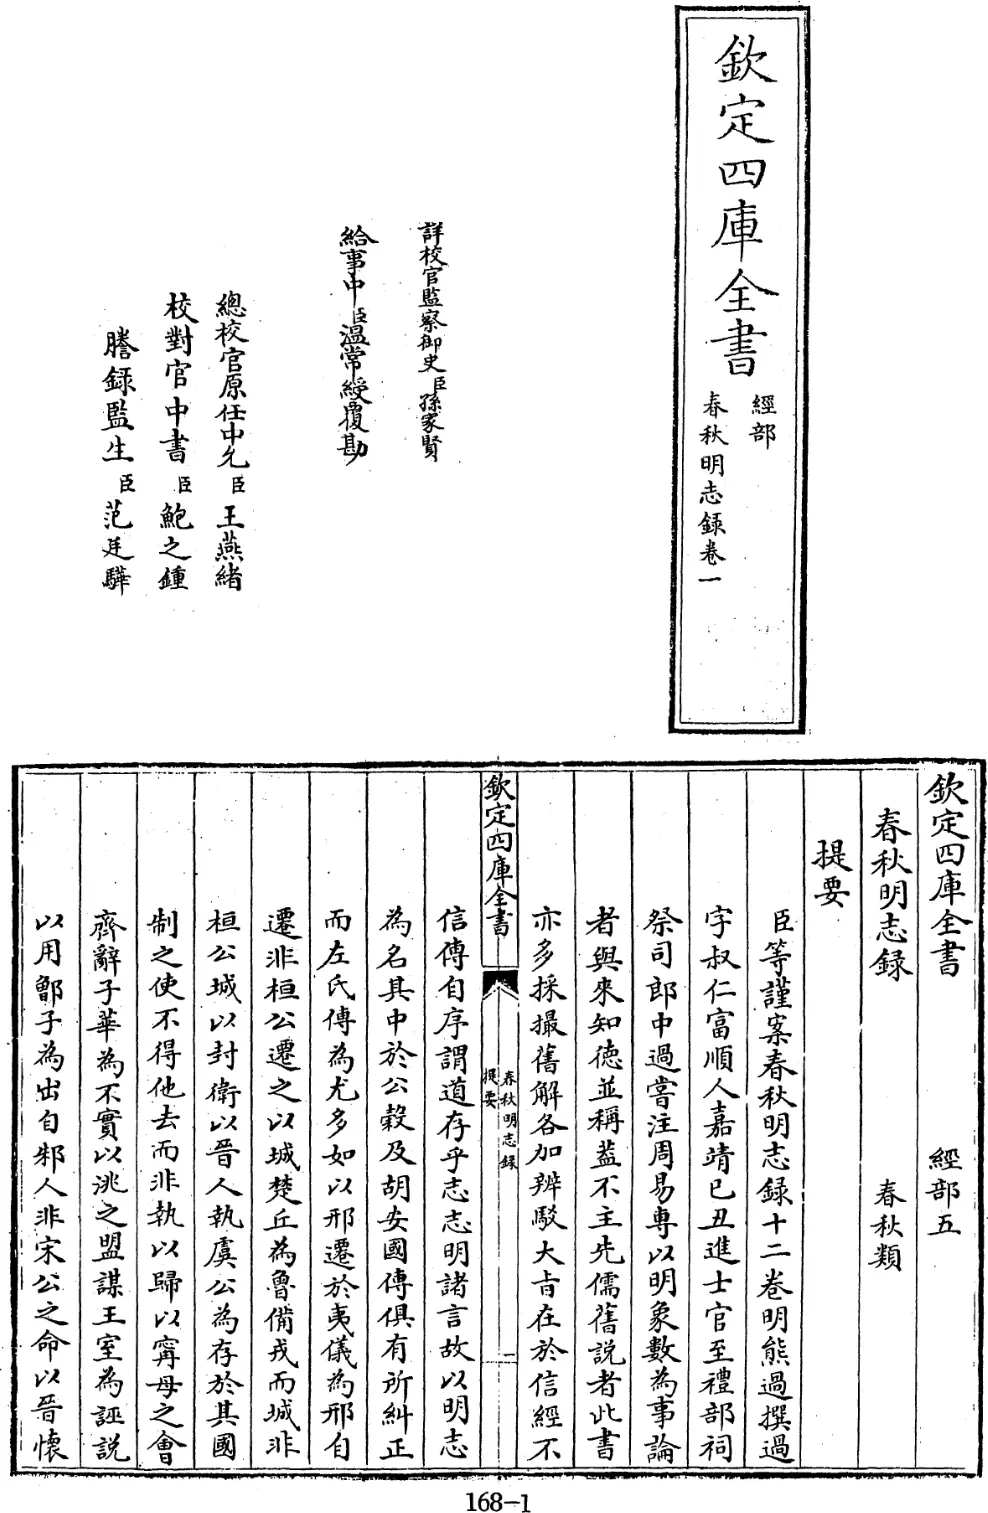 欽定四庫全書
經部
春秋明志錄卷一
詳校官監察御史臣孫家賢
給事中臣溫常綬覆勘
總校官原任中允臣王燕緒
校對官中書臣鮑之鍾
謄錄監生臣范廷驊
欽定四庫全書 經部五
春秋明志録 春秋類
提要
臣等謹案春秋明志録十二卷明熊過撰過
字叔仁富順人嘉靖己丑進士官至禮部祠
祭司郎中過嘗注周易專以明象數為事論
者與來知德並稱蓋不主先儒舊說者此書
亦多採撮舊解各加辨駁大旨在於信經不
欽定四庫全書
春秋明志錄
提要
一
信傳自序謂道存乎志志明諸言故以明志
為名其中於公穀及胡安國傳俱有所糾正
而左氏傳為尤多如以邢遷於夷儀為邢自
遷非桓公遷之以城楚丘為魯備戎而城非
桓公城以封衛以晉人執虞公為存於其國
制之使不得他去而非執以歸以甯母之會
齊辭子華為不實以洮之盟謀王室為誣說
以用鄫子為出自邾人非宋公之命以晉懷
168-1